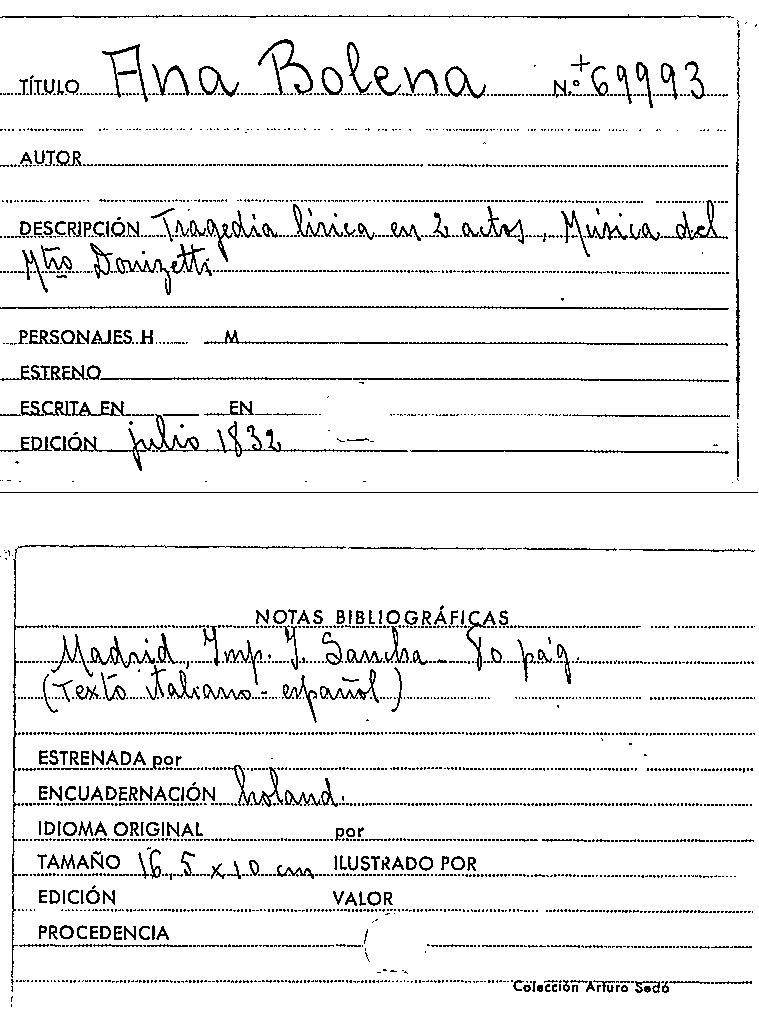 TÍTULO Ana Bolena N.º +69993
AUTOR
DESCRIPCIÓN Tragedia lírica en 2 actos, Música del
Mtro Donizetti
PERSONAJES H M
ESTRENO
ESCRITA EN EN
EDICIÓN julio 1832
NOTAS BIBLIOGRÁFICAS
Madrid, Imp. J. Sancha - 80 pág.
(Texto italiano-español)
ESTRENADA por
ENCUADERNACIÓN holand.
IDIOMA ORIGINAL por
TAMAÑO 16,5 x 10 cm ILUSTRADO POR
EDICIÓN VALOR
PROCEDENCIA
Colección Arturo Sedó